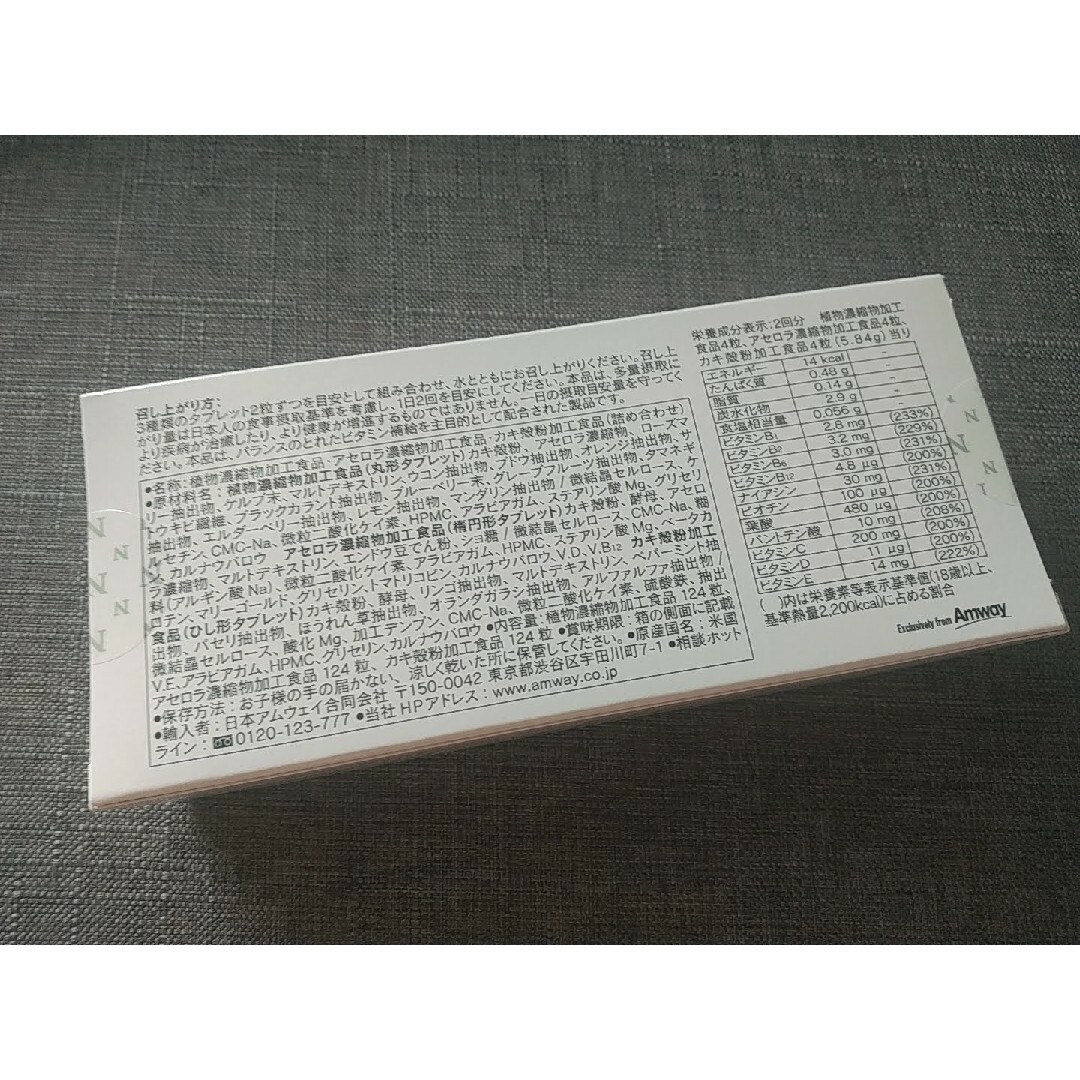 召し上がり方:
3種類のタブレット2粒ずつを目安として組み合わせ、水とともにお召し上がりください。召し上
がり量は日本人の食事摂取基準を考慮し、1日2回を目安にしてください。本品は、多量摂取に
より疾病が治癒したり、より健康が増進するものではありません。一日の摂取目安量を守ってく
ださい。本品は、バランスのとれたビタミン補給を主目的として配合された製品です。
●名称:植物濃縮物加工食品、アセロラ濃縮物加工食品、カキ殻粉加工食品(詰め合わせ)
●原材料名:植物濃縮物加工食品(丸形タブレット)カキ殻粉、アセロラ濃縮物、ローズマ
リー抽出物、ケルプ末、マルトデキストリン、ウコン抽出物、ブドウ抽出物、オレンジ抽出物、サ
トウキビ繊維、ブラックカラント抽出物、ブルーベリー末、グレープフルーツ抽出物、タマネギ
抽出物、エルダーベリー抽出物、レモン抽出物、マンダリン抽出物/微結晶セルロース、ケ
ルセチン、CMC-Na、微粒二酸化ケイ素、HPMC、アラビアガム、ステアリン酸Mg、グリセリ
ン、カルナウバロウ アセロラ濃縮物加工食品(楕円形タブレット)カキ殻粉、酵母、アセロ
ラ濃縮物、マルトデキストリン、エンドウ豆でん粉、ショ糖/微結晶セルロース、CMC-Na、糊
料(アルギン酸Na)、微粒二酸化ケイ素、アラビアガム、HPMC、ステアリン酸Mg、ベータカ
ロテン、マリーゴールド、グリセリン、トマトリコピン、カルナウバロウ、V.D、V.B12 カキ殻粉加工
食品(ひし形タブレット)カキ殻粉、酵母、リンゴ抽出物、マルトデキストリン、ペパーミント抽
出物、パセリ抽出物、ほうれん草抽出物、オランダガラシ抽出物、アルファルファ抽出物/
微結晶セルロース、酸化Mg、加工デンプン、CMC-Na、微粒二酸化ケイ素、硫酸鉄、抽出
V.E、アラビアガム、HPMC、グリセリン、カルナウバロウ ●内容量:植物濃縮物加工食品 124粒、
アセロラ濃縮物加工食品 124粒、カキ殻粉加工食品 124粒 ●賞味期限:箱の側面に記載
●保存方法:お子様の手の届かない、涼しく乾いた所に保管してください。●原産国名:米国
●輸入者:日本アムウェイ合同会社 〒150-0042 東京都渋谷区宇田川町7-1 ●相談ホット
ライン:0120-123-777 ●当社HPアドレス:www.amway.co.jp
栄養成分表示:2回分 植物濃縮物加工
食品4粒、アセロラ濃縮物加工食品4粒、
カキ殻粉加工食品4粒(5.84g)当り
エネルギー 14 kcal -
たんぱく質 0.48 g -
脂質 0.14 g -
炭水化物 2.9 g -
食塩相当量 0.056 g -
ビタミンB1 2.8 mg (233%)
ビタミンB2 3.2 mg (229%)
ビタミンB6 3.0 mg (231%)
ビタミンB12 4.8 μg (200%)
ナイアシン 30 mg (231%)
ビオチン 100 μg (200%)
葉酸 480 μg (200%)
パントテン酸 10 mg (208%)
ビタミンC 200 mg (200%)
ビタミンD 11 μg (200%)
ビタミンE 14 mg (222%)
( )内は栄養素等表示基準値(18歳以上、
基準熱量2,200kcal)に占める割合
Exclusively from Amway
N
N
N
N
N
N
N